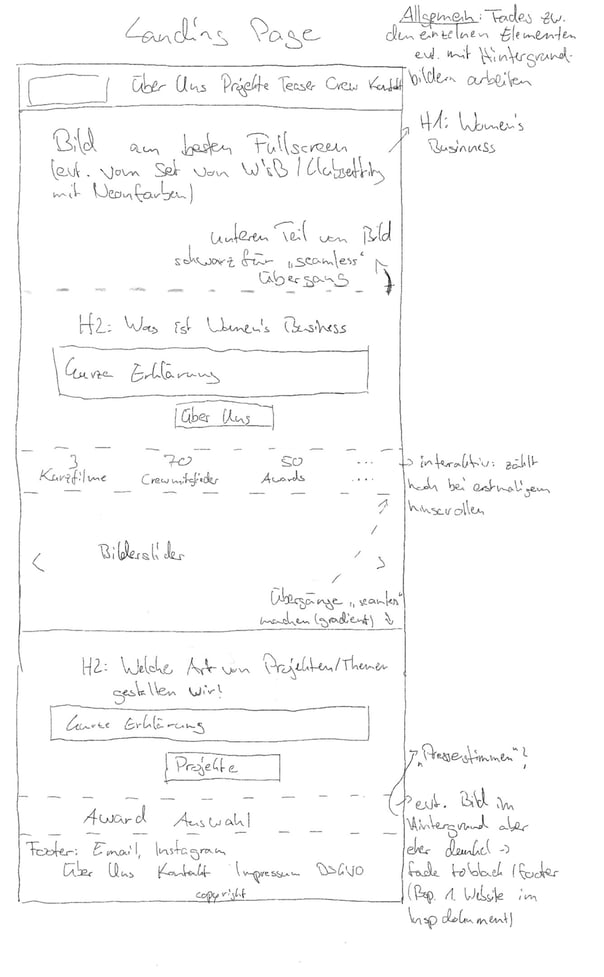 Landing Page
Allgemein: Fades zw.
den einzelnen Elementen
evt. mit Hintergrund-
bildern arbeiten
Über Uns Projekte Teaser Crew Kontakt
H1: Women's
Businness
Bild am besten Fullscreen
(evt. vom Set von WsB / Clubsetting
mit Neonfarben)
unteren Teil von Bild
schwarz für „seamless"
Übergang
H2: Was ist Women's Business
Kurze Erklärung
Über Uns
3 70 50 ...
Kurzfilme Crewmitglieder Awards ....
interaktiv: zählt
hoch bei erstmaligem
hinscrollen
< Bilderslider >
Übergänge „seamless"
machen (gradient)
H2: Welche Art von Projekten/Themen
gestalten wir?
Kurze Erklärung
Projekte
„Pressestimmen"?
Award Auswahl
evt. Bild im
Hintergrund aber
eher dunkel ->
fade to black / footer
(Bsp. 1. Website im
Inspdokument)
Footer: Email, Instagram
Über Uns Kontakt Impressum DSGVO
copyright